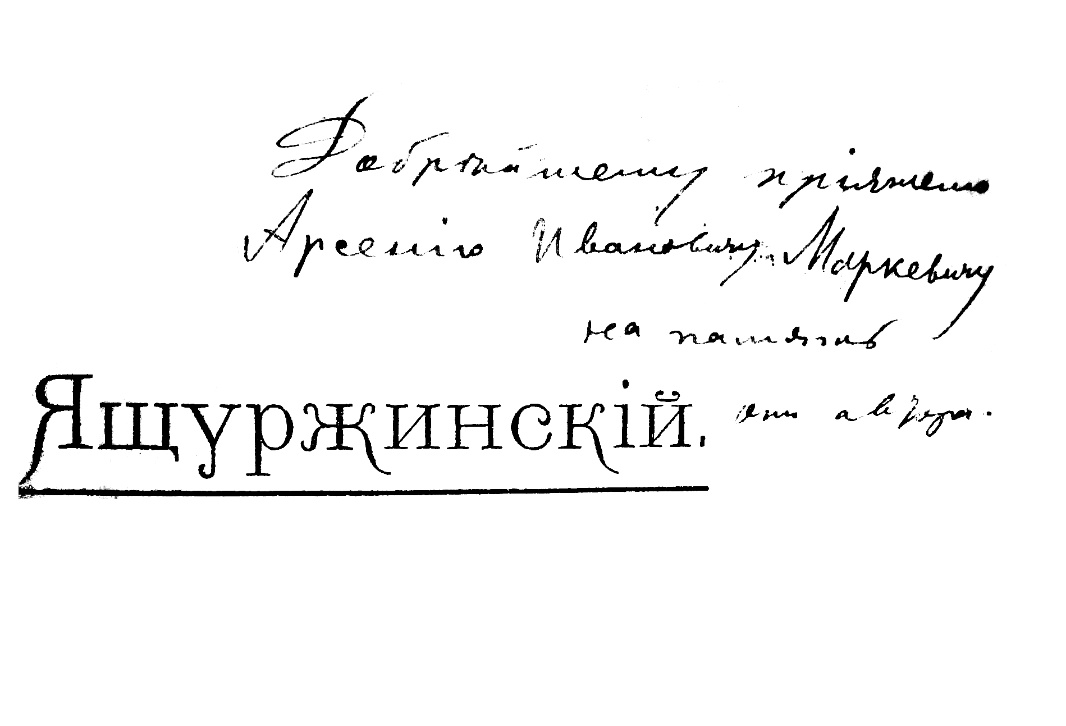 Добрѣйшему пріятелю
Арсенію Ивановичу Маркевичу
на память
Ящуржинскій.
отъ автора.